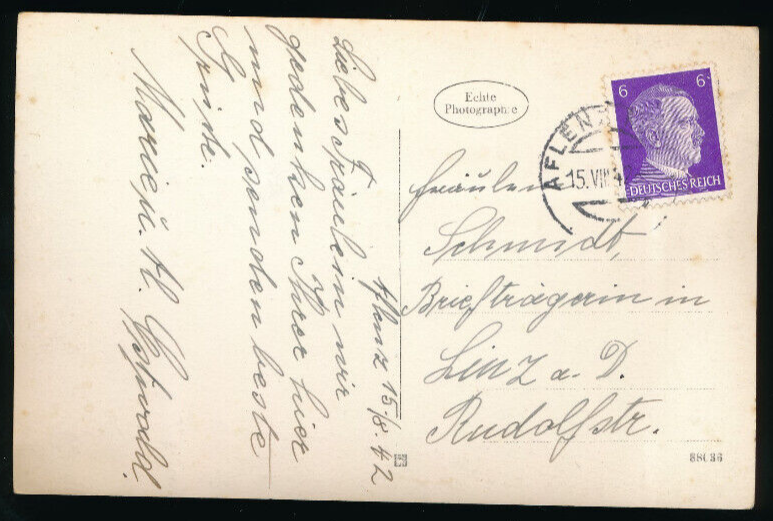 Aflenz 15/8. 42
Liebes Fräulein wir
gedenken Ihrer hier
und senden beste
Grüße.
Marie u. H.
Echte
Photographie
6 6
DEUTSCHES REICH
AFLENZ
15. VIII. 4
Fräulein
Schmidt,
Briefträgerin in
Linz a. D.
Rudolfstr.